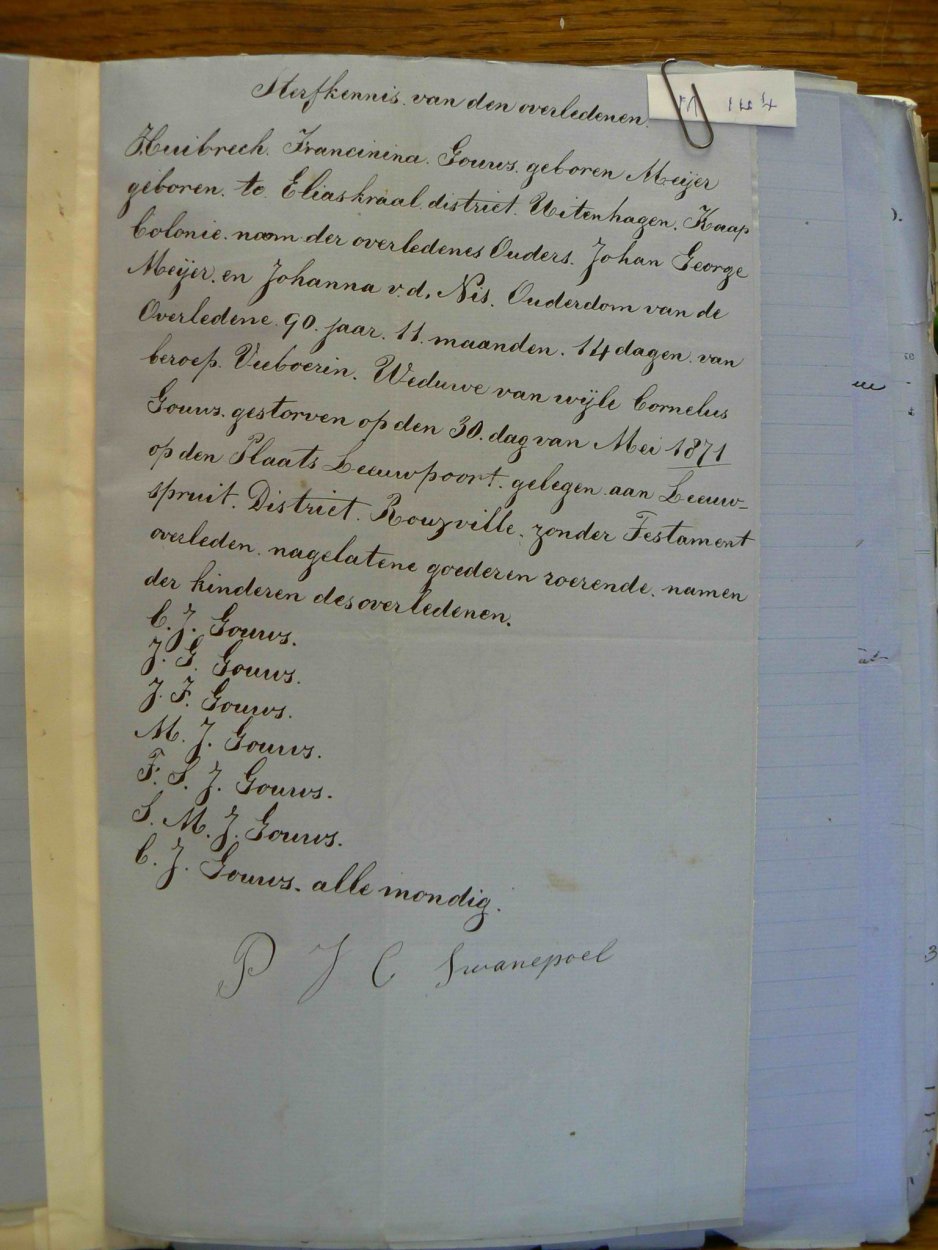 Sterfkennis. van den overledenen.
M 144
Huibrech. Francinina. Gouws. geboren Meijer
geboren. te Eliaskraal. district. Uitenhagen. Kaap
Colonie. naam der overledenes Ouders. Johan George
Meijer. en Johanna v.d. Nis. Ouderdom van de
Overledene. 90. jaar. 11. maanden. 14 dagen. van
beroep. Veeboerin. Weduwe van wijle Cornelus
Gouws. gestorven op den 30. dag van Mei 1871
op den Plaats Leeuwpoort. gelegen aan Leeuw-
spruit. District. Rouxville. zonder Testament
overleden. nagelatene goederen roerende. namen
der kinderen des overledenen.
C. J. Gouws.
J. G. Gouws.
J. F. Gouws.
M. J. Gouws.
F. S. J. Gouws.
S. M. J. Gouws.
C. J. Gouws. alle mondig.
P J C Swanepoel